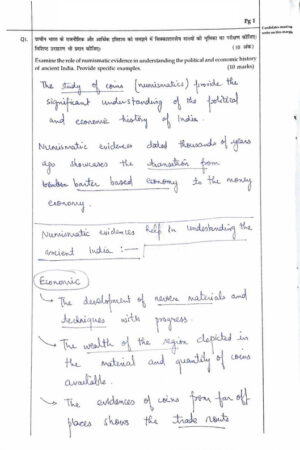 Pg 1
Q1. प्राचीन भारत के राजनीतिक और आर्थिक इतिहास को समझने में सिक्काशास्त्रीय साक्ष्यों की भूमिका का परीक्षण कीजिए।
विशिष्ट उदाहरण भी प्रदान कीजिए। (10 अंक)
Examine the role of numismatic evidence in understanding the political and economic history
of ancient India. Provide specific examples. (10 marks)
The study of coins (numismatics) provide the
significant understanding of the political
and economic history of India.
Numismatic evidences dated thousands of years
ago showcases the transition from
barter based economy to the money
economy.
Numismatic evidences help in understanding the
ancient India :—
Economic
The development of newer materials and
techniques with progress.
The wealth of the region depicted in
the material and quantity of coins
available.
The evidences of coins from far off
places shows the trade route